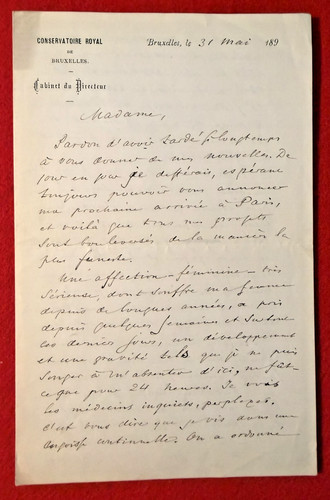 CONSERVATOIRE ROYAL
DE
BRUXELLES.
Cabinet du Directeur
Bruxelles, le 31 Mai 189
Madame,
Pardon d'avoir tardé si longtemps
à vous donner de mes nouvelles. De
jour en jour je différais, espérant
toujours pouvoir vous annoncer
ma prochaine arrivée à Paris,
et voilà que tous mes projets
sont bouleversés de la manière la
plus funeste.
Une affection féminine très
sérieuse, dont souffre ma femme
depuis de longues années, a pris
depuis quelques semaines et surtout
les derniers jours, un développement
et une gravité tels que je ne puis
songer à m'absenter d'ici, ne fût-
ce que pour 24 heures. Je vois
les médecins inquiets, perplexes.
C'est vous dire que je vis dans une
angoisse continuelle. On a ordonné